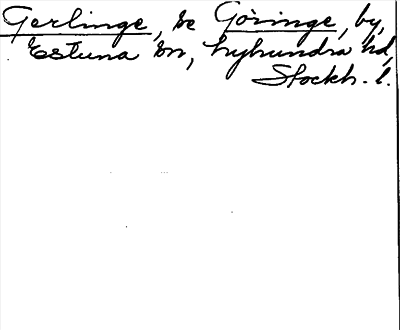 Gerlinge, se Göringe, by,
Estuna sn, Lyhundra hd,
Stockh. l.